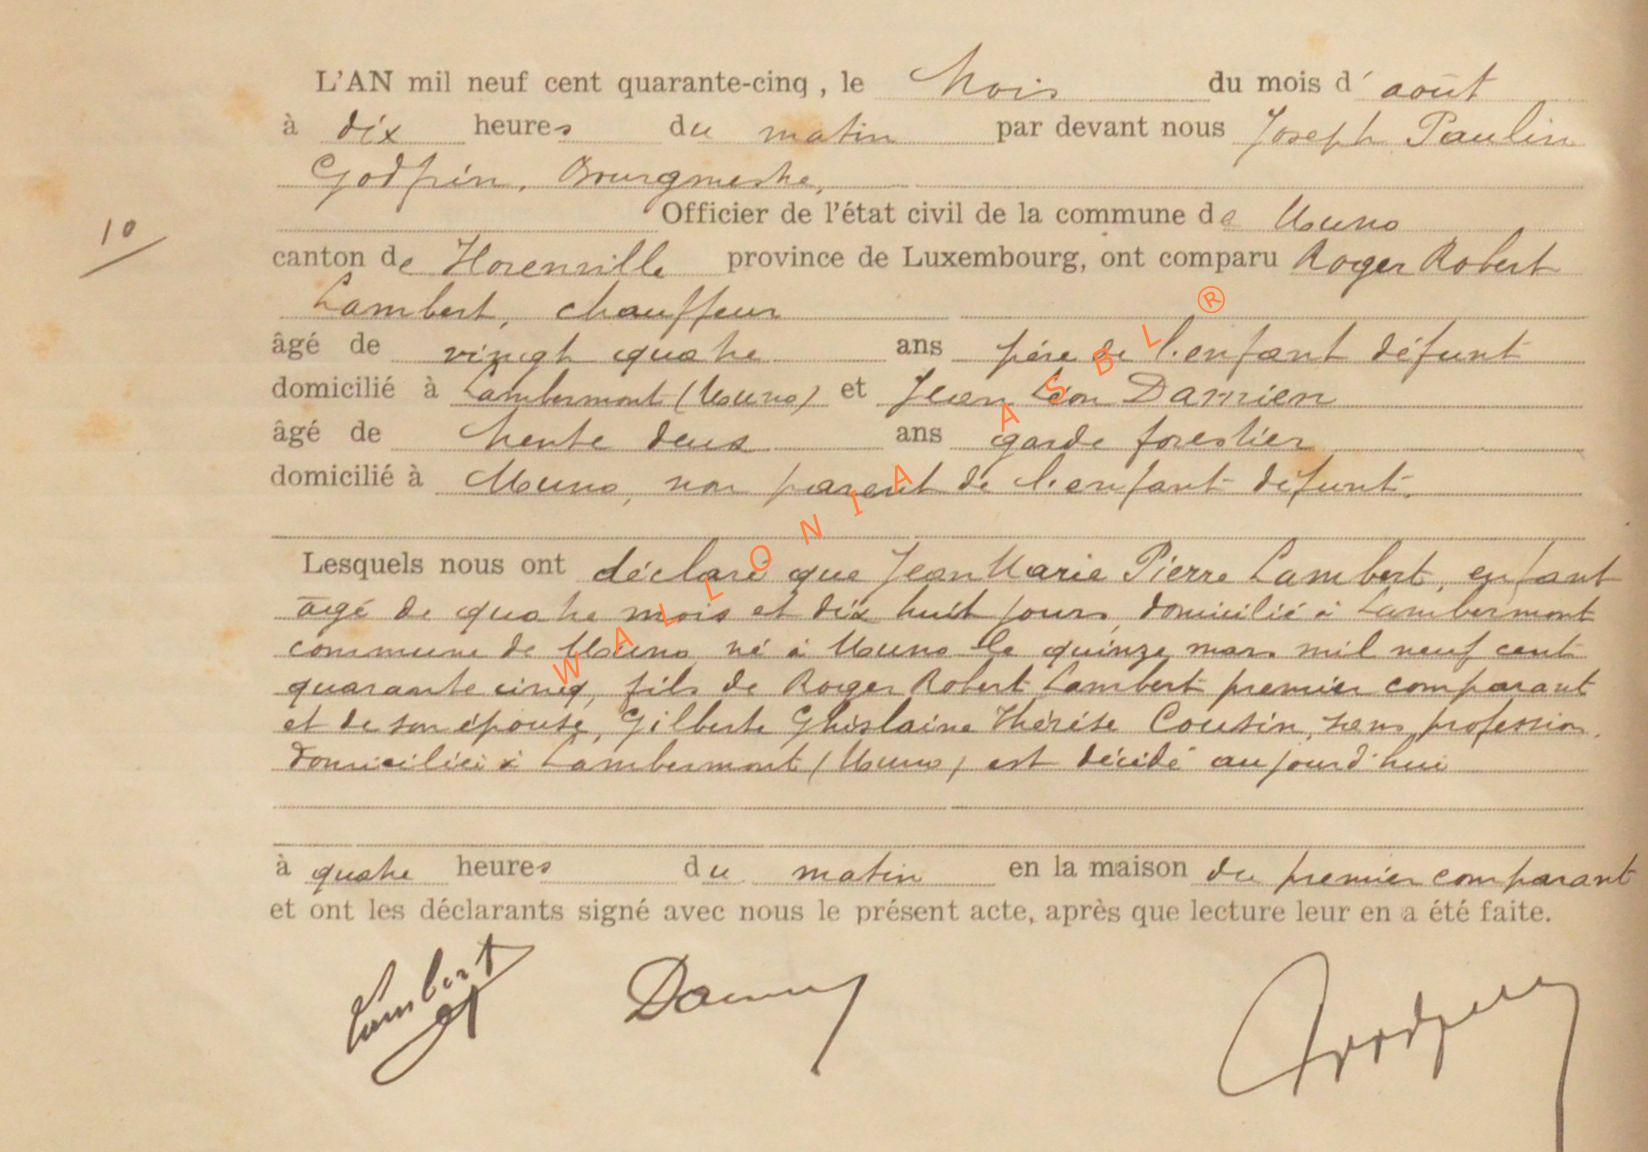 L'AN mil neuf cent quarante-cinq, le trois du mois d'août
à dix heures du matin par devant nous Joseph Paulin
Godfrin, Bourgmestre,
Officier de l'état civil de la commune de Muno
10
canton de Florenville province de Luxembourg, ont comparu Roger Robert
Lambert, chauffeur
âgé de vingt quatre ans père de l'enfant défunt
domicilié à Lambermont (Muno) et Jean Léon Damien
âgé de trente deux ans garde forestier
domicilié à Muno, non parent de l'enfant défunt.
Lesquels nous ont déclaré que Jean Marie Pierre Lambert, enfant
âgé de quatre mois et dix huit jours, domicilié à Lambermont
commune de Muno né à Muno le quinze mars mil neuf cent
quarante cinq, fils de Roger Robert Lambert premier comparant
et de son épouse, Gilberte Ghislaine Thérèse Cousin, sans profession,
domiciliés à Lambermont (Muno) est décédé aujourd'hui
à quatre heures du matin en la maison du premier comparant
et ont les déclarants signé avec nous le présent acte, après que lecture leur en a été faite.
Lambert Damien Godfrin
WALLONIA ASBL ®